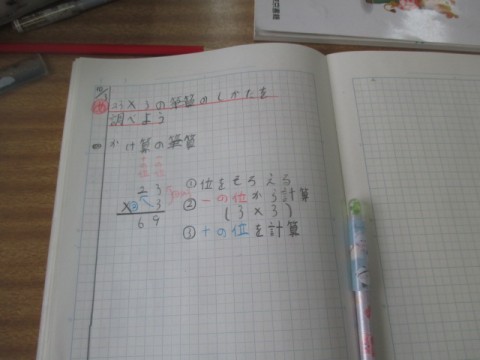 23×3の筆算のしかたを
調べよう
かけ算の筆算
十の位 一の位
23
×3
69
①位をそろえる
②一の位から計算
(3×3)
③十の位を計算